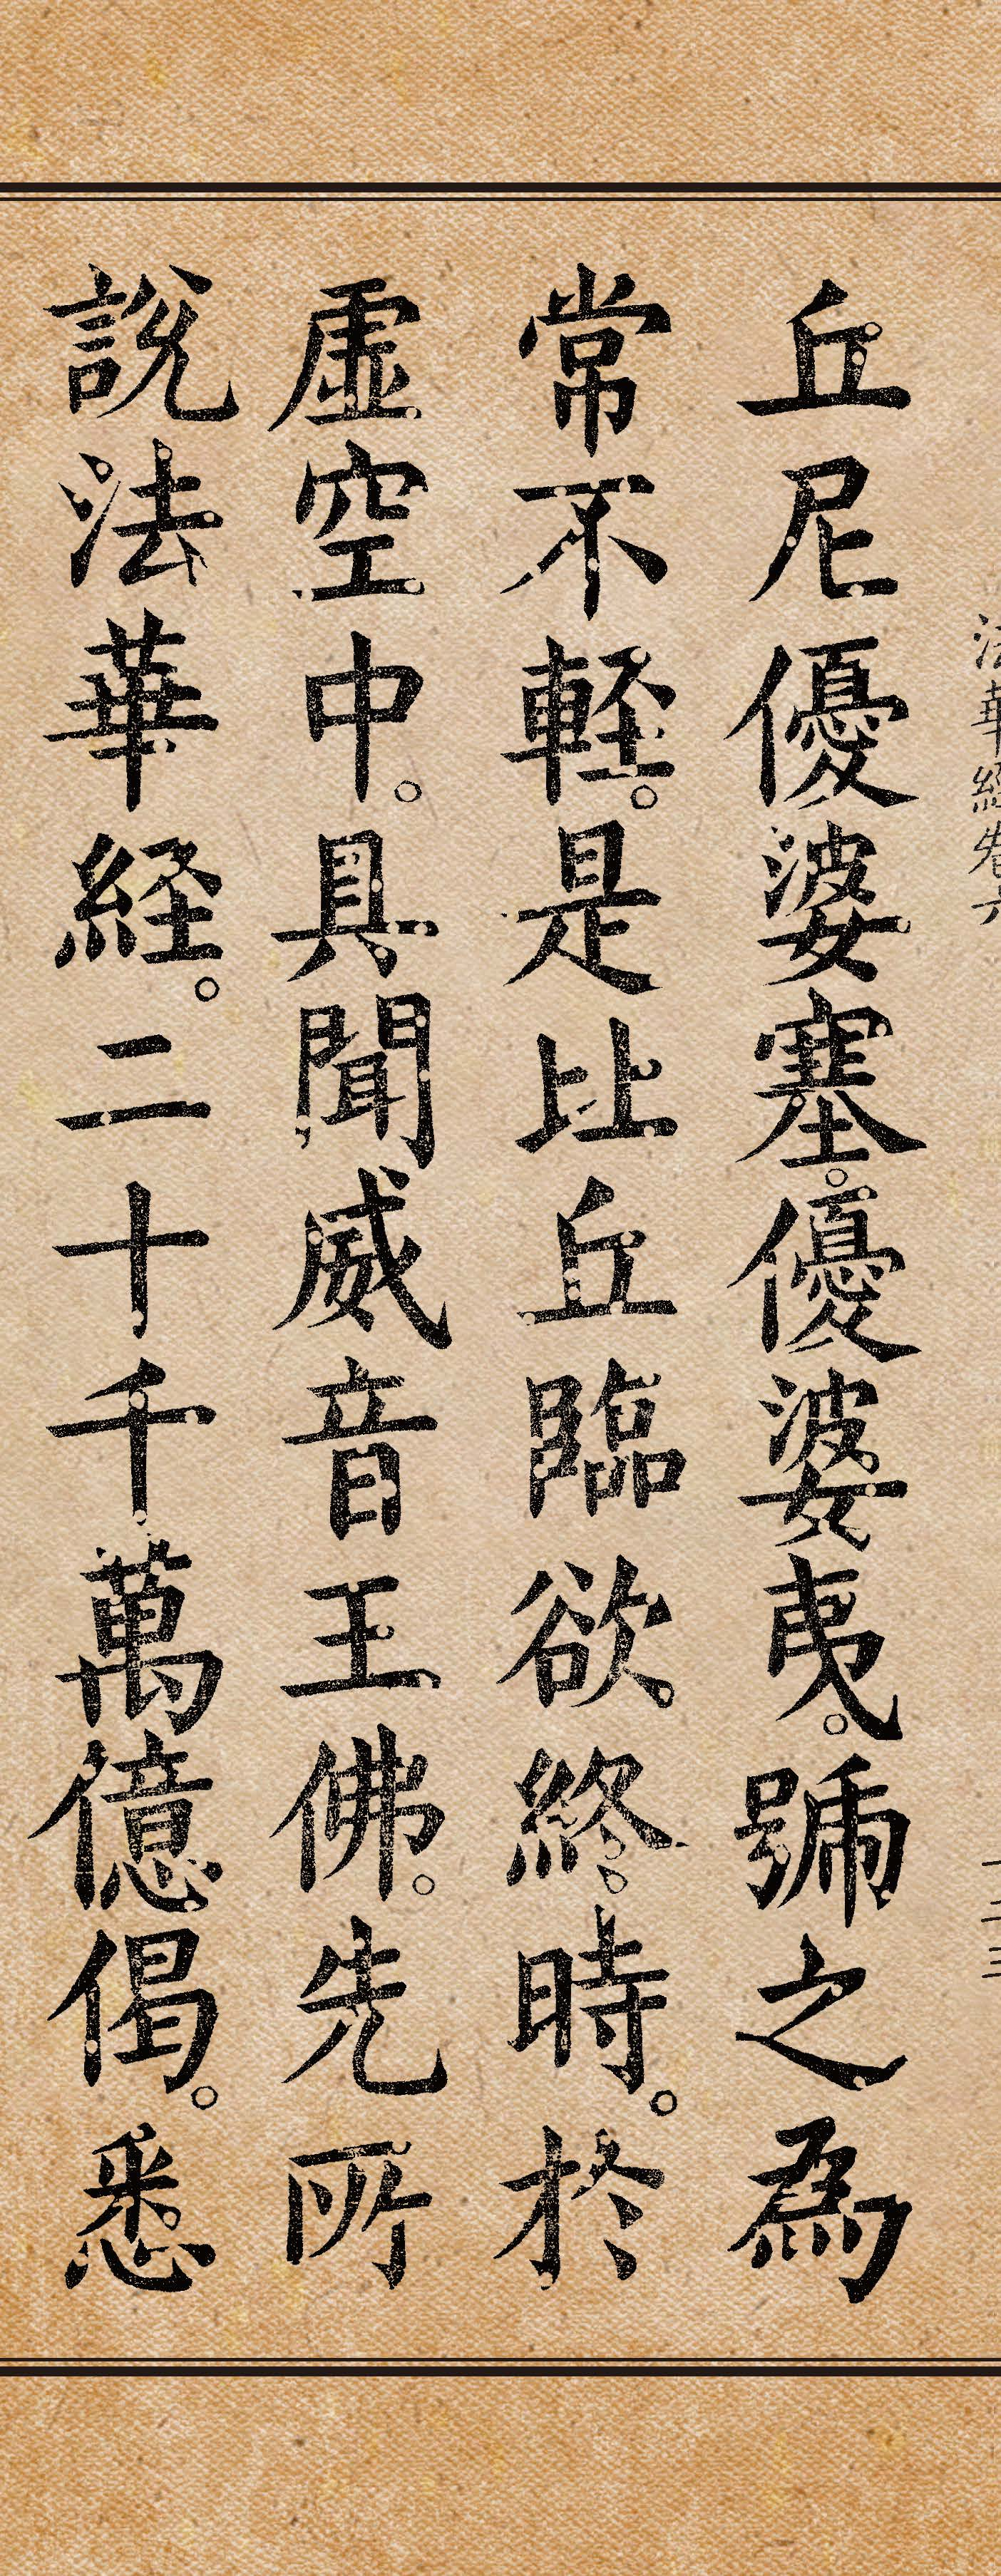 法華經卷六
一二三
丘尼優婆塞。優婆夷。號之為
常不軽。是比丘臨欲終時。於
虛空中。具聞威音王佛。先所
說法華経。二十千萬億偈。悉